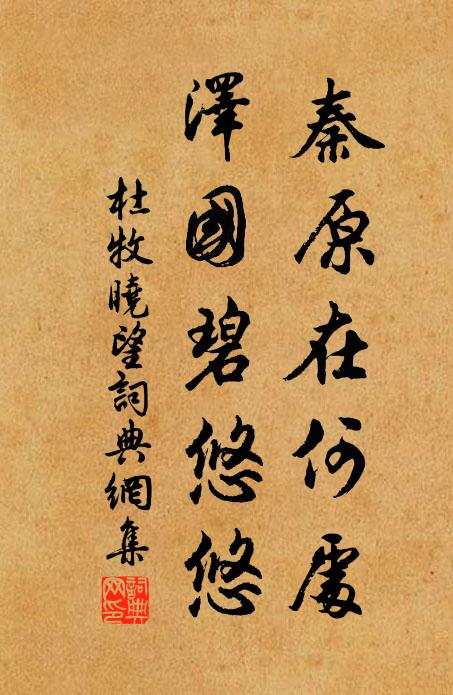 秦原在何處
澤國碧悠悠
杜牧曉望詞典網集
詞典
網印